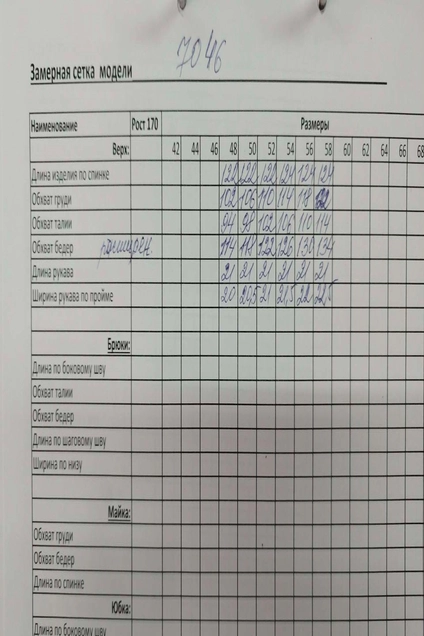 Замерная сетка модели 7046
Наименование Рост 170 Размеры
Верх: 42 44 46 48 50 52 54 56 58 60 62 64 66 68
Длина изделия по спинке 122 122 122 124 124 124
Обхват груди 102 106 110 114 118 122
Обхват талии 94 98 102 106 110 114
Обхват бедер расширен 114 118 122 126 130 134
Длина рукава 21 21 21 21 21 21
Ширина рукава по пройме 20 20,5 21 21,5 22 22,5
Брюки:
Длина по боковому шву
Обхват талии
Обхват бедер
Длина по шаговому шву
Ширина по низу
Майка:
Обхват груди
Обхват бедер
Длина по спинке
Юбка:
Длина по боковому шву